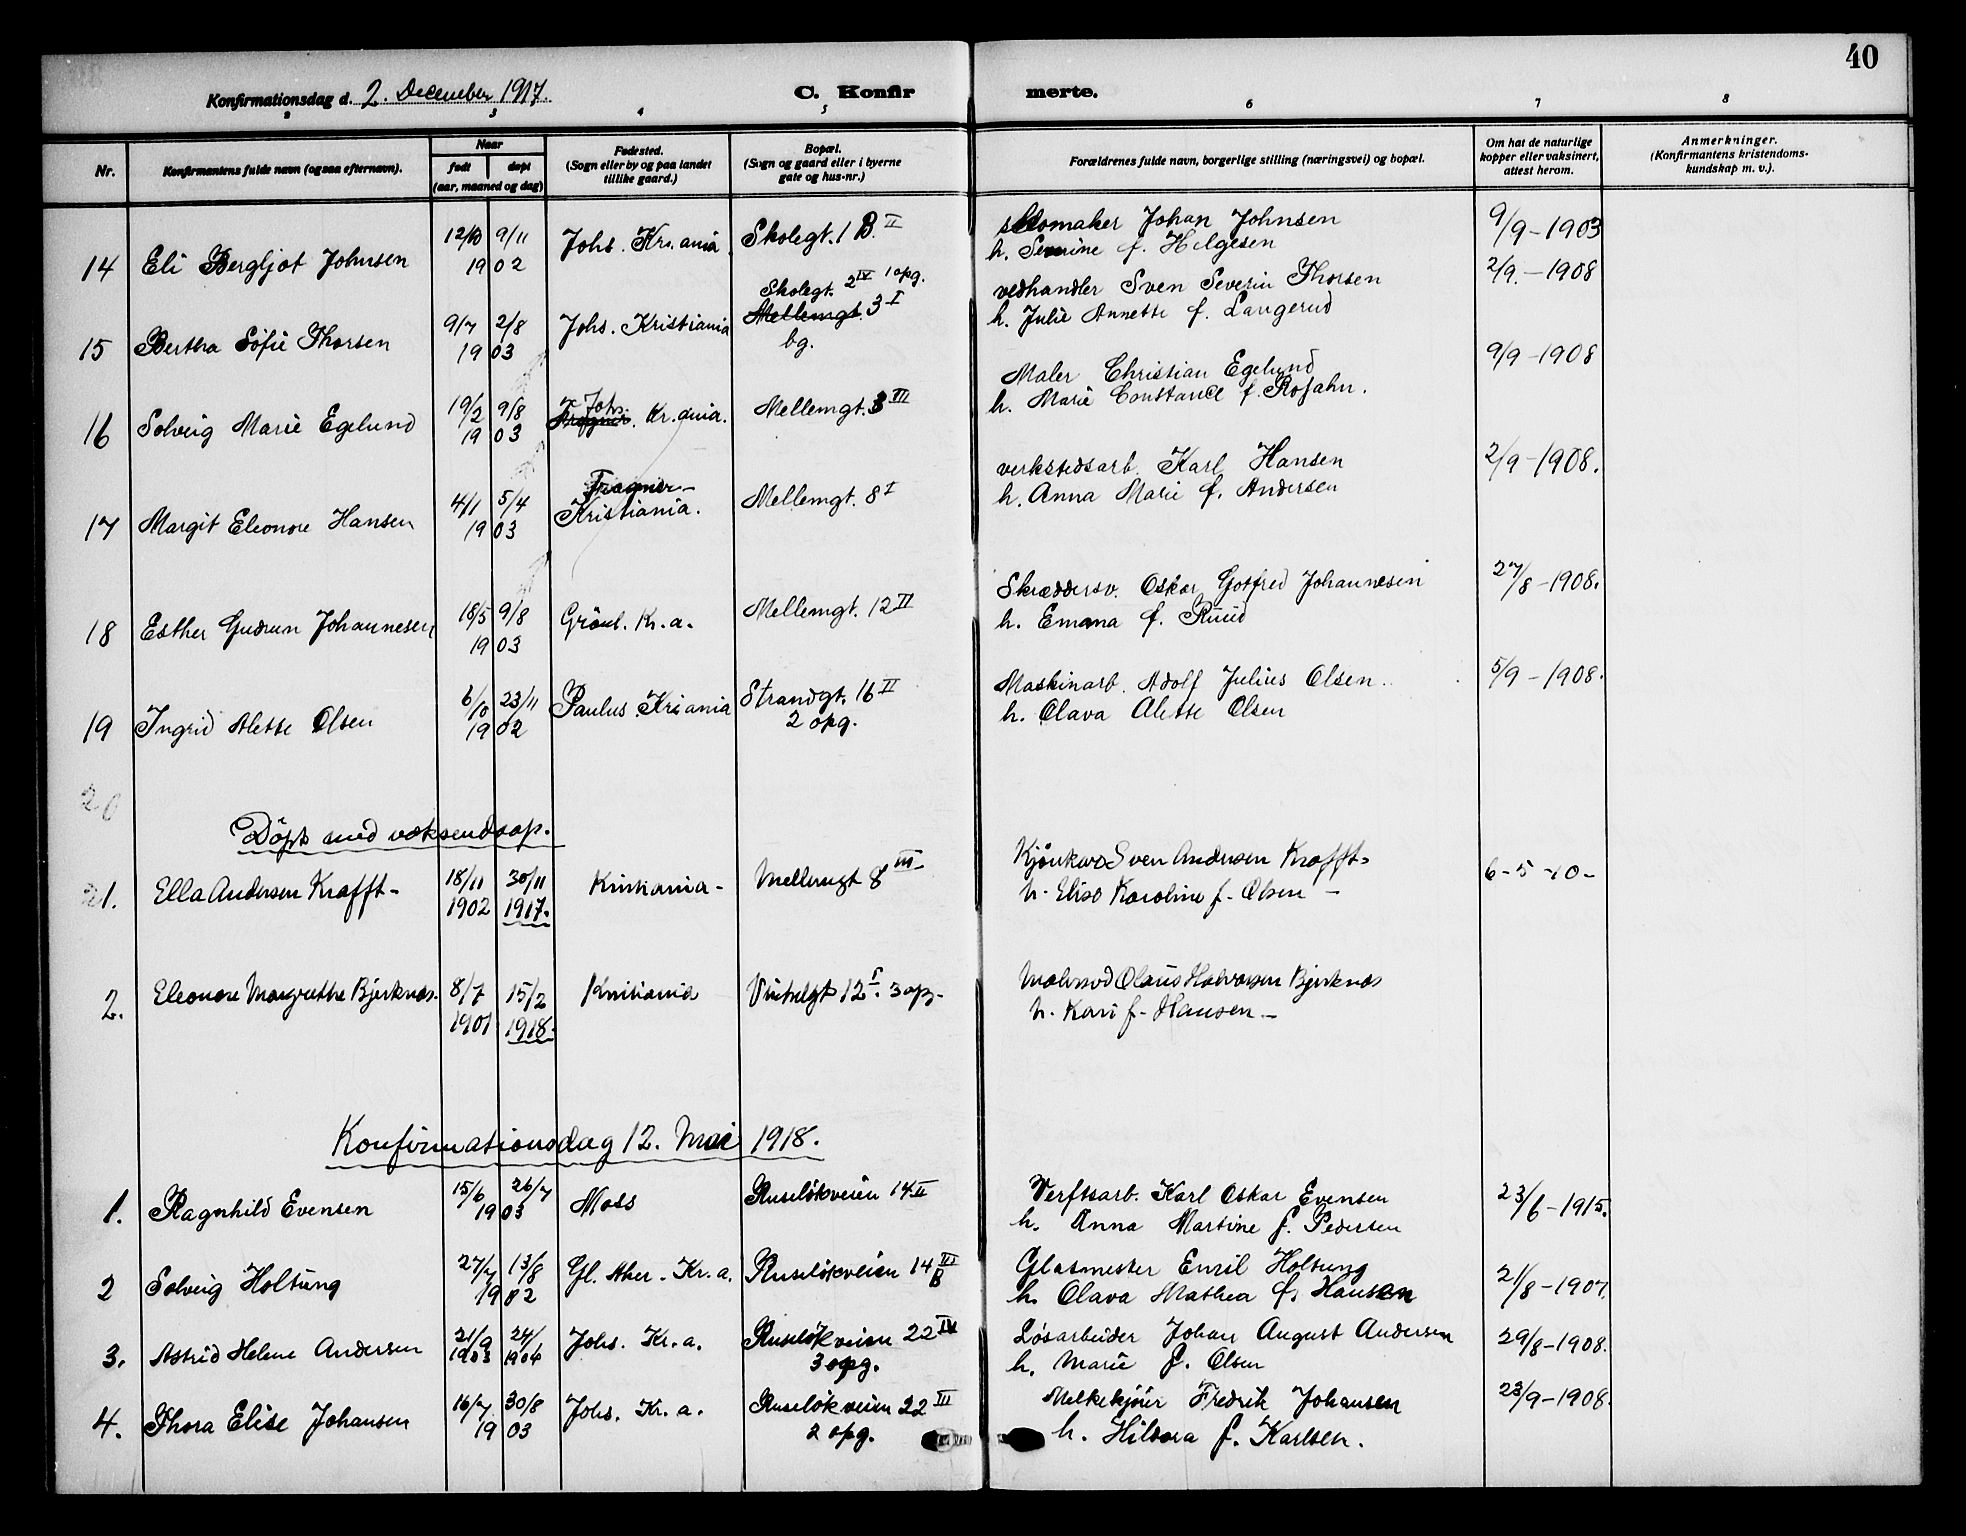 40
Konfirmationsdag d. 2. December 1917.
C. Konfirmerte.
2 3 4 5 6 7 8
Nr.
Konfirmantens fulde navn (ogsaa efternavn).
Naar
født døpt
(aar, maaned og dag)
Fødested.
(Sogn eller by og paa landet
tillike gaard.)
Bopæl.
(Sogn og gaard eller i byerne
gate og hus-nr.)
Forældrenes fulde navn, borgerlige stilling (næringsvei) og bopæl.
Om hat de naturlige
kopper eller vaksinert,
attest herom.
Anmerkninger.
(Konfirmantens kristendoms-
kundskap m. v.).
14 Eli Bergljot Johnsen 12/10 9/11 1902 Johs. Kr.ania Skolegt. 1 B. II skomaker Johan Johnsen 9/9-1903
h. Semine f. Helgesen
15 Bertha Sofie Thorsen 9/7 2/8 1903 Johs. Kristiania Skolegt. 2 IV 1 opg. vedhandler Sven Severin Thorsen 2/9.-1908
Mellemgt. 3 I bg. h. Julie Annette f. Langerud
16 Solveig Marie Egelund 19/2 9/8 1903 Johs. Kr.ania. Mellemgt. 3 III Maler Christian Egelund 9/9-1908
h. Marie Constance f. Rosahn.
17 Margit Eleonore Hansen 4/1 5/4 1903 Fragner- Kristiania. Mellemgt. 8 I verkstedsarb. Karl Hansen 2/9-1908.
h. Anna Marie f. Andersen
18 Esther Gudrun Johannesen 18/5 9/8 1903 Grønl. Kr.a. Mellemgt. 12 II Skræddersv. Oskar Gotfred Johannesen 27/8-1908.
h. Emma f. Ruud
19 Ingrid Alette Olsen 6/10 23/11 1902 Paulus. Kr.ania Strandgt. 16 II Maskinarb. Adolf Julius Olsen. 5/9-1908.
2 opg. h. Olava Alette Olsen
20
Døpt med voksendaap.
1. Ella Andersen Krafft- 18/11 1902 30/11 1917. Kristiania- Mellemgt 8 III- Sven Andersen Krafft- 6-5-10-
h. Elise Karoline f. Olsen -
2. Eleonore Margrethe Bjerknes. 8/7 1901 15/2 1918. Kristiania 12 I. 3 op- Olaus Halvorsen Bjerknes
h. Kari f. Hansen.-
Konfirmationsdag 12. Mai 1918.
1. Ragnhild Evensen 15/6 26/7 1903 Moss Ruseløkveien 14 II Verftsarb. Karl Oskar Evensen 23/6-1915.
h. Anna Martine f. Pedersen
2 Solveig Holtung 27/7 13/8 1902 Gl. Aker. Kr.a. Ruseløkveien 14 B III Glasmester Emil Holtung 21/8-1907.
h. Olava Mathea f. Hansen
3. Astrid Helene Andersen 21/9 1903 24/1 1904 Johs. Kr.a. Ruseløkveien 22 IV Løsarbeider Johan August Andersen 29/8-1908.
3 opg. h. Marie f. Olsen
4. Thora Elise Johansen 16/7 30/8 1903 Johs. Kr.a. Ruseløkveien 22 III Melkekjører Fredrik Johansen 23/9-1908.
2 opg. h. Hildora f. Karlsen.